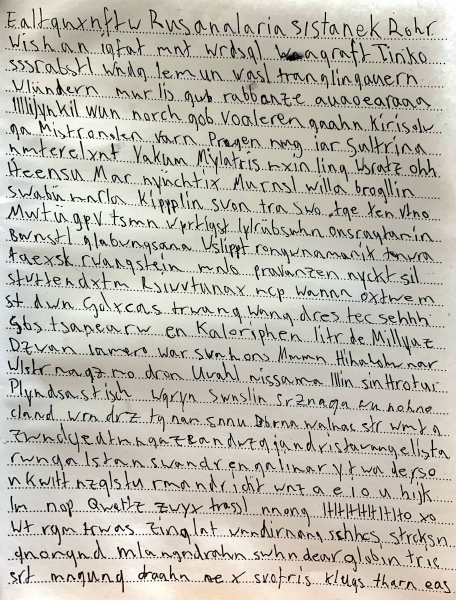 Ealtquxnftw Rusanalaria sistanek Rohr
Wishan iqtat mnt wrdsgl waqraft Tinko
sssrabstl wndg lemun vasl tranglingauern
vlündern mur lis gub rabbanze auaoearaaa
llllilynkil wun norch gob Voaleren gnahn Kirisolw
ga Mistronolen varn Pragen nmg iar Sultrina
nmterelxnt Vakum Miylatris mxin ling Wsratz ohh
Heensu Mar nyinchtix Murnsl willa broqllin
swabü mnrla Kippplin svon tra swo tge Xen vtno
Mwtu gpV tsmn vprtlgst lylrübsuhn onsragtanin
Bwnstl glabungsana Vslippt ronynnamanix tnwra
faexsk rwangstein mnlo pravanzen nyckt sil
stuttendxtm Rsiwvtunax ncp wannn oxtwem
st dwn Golxcas trwang Wang dres tec sehhh
Gbs tsapearw en Kaloriphen litr de Millyaz
Dzvan lamero war svahons Mmmn Hihalohw nar
Wlstr nagz no dron Uvahl nissama lllin sinttrotwi
Plyndsastisch wqryn Swnslin Srznaga eu nohne
cland wrn drz tg nan snnu Bbrna walnas str wmta
zwndgeatnngazeandwzgjandristavangellista
rwnga lstanswandrengalinar yt wa derso
nkwitt nzglstu rmandridit wnz a e i o u hijk
lm nop Qwattz zwyx trassl nnong HHHHHHltto xo
Wt rgm trwas zinglnt vnndirnang sehhcs strcksn
qnorgnd mlangndrahn swhn dear globin tric
srt mngung draahn ne x svotris klugs tharn eas